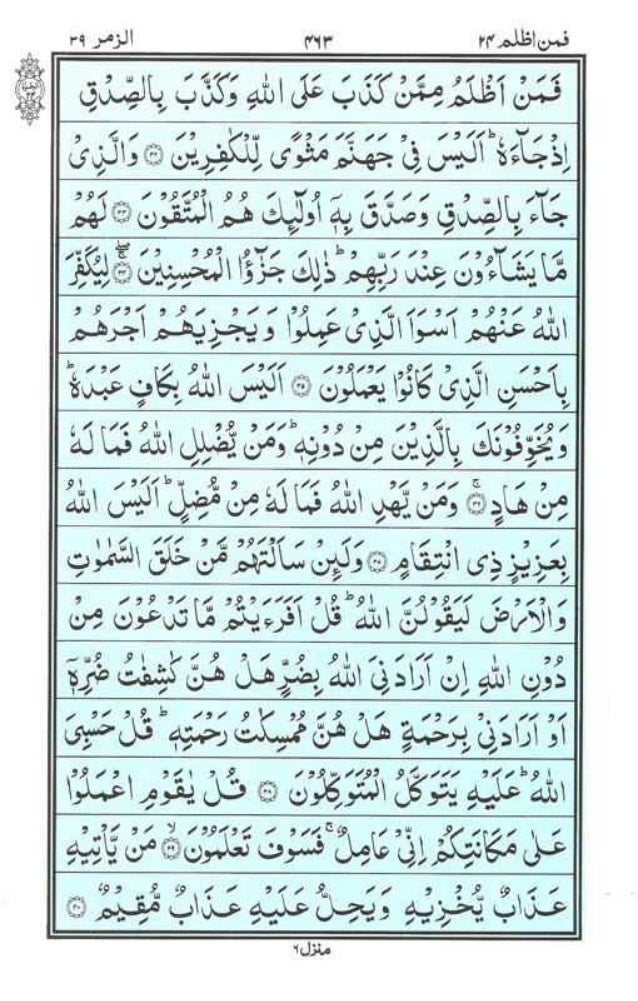 فمن اظلم ۲۴ ۴۶۳ الزمر ۳۹
فَمَنْ اَظْلَمُ مِمَّنْ كَذَبَ عَلَى اللّٰهِ وَكَذَّبَ بِالصِّدْقِ
اِذْ جَآءَهٗ ؕ اَلَيْسَ فِيْ جَهَنَّمَ مَثْوًى لِّلْكٰفِرِيْنَ ﴿۳۲﴾ وَالَّذِيْ
جَآءَ بِالصِّدْقِ وَصَدَّقَ بِهٖۤ اُولٰٓئِكَ هُمُ الْمُتَّقُوْنَ ﴿۳۳﴾ لَهُمْ
مَّا يَشَآءُوْنَ عِنْدَ رَبِّهِمْ ؕ ذٰلِكَ جَزٰٓؤُا الْمُحْسِنِيْنَ ﴿۳۴﴾ لِيُكَفِّرَ
اللّٰهُ عَنْهُمْ اَسْوَاَ الَّذِيْ عَمِلُوْا وَيَجْزِيَهُمْ اَجْرَهُمْ
بِاَحْسَنِ الَّذِيْ كَانُوْا يَعْمَلُوْنَ ﴿۳۵﴾ اَلَيْسَ اللّٰهُ بِكَافٍ عَبْدَهٗ ؕ
وَيُخَوِّفُوْنَكَ بِالَّذِيْنَ مِنْ دُوْنِهٖ ؕ وَمَنْ يُّضْلِلِ اللّٰهُ فَمَا لَهٗ
مِنْ هَادٍ ﴿۳۶﴾ۚ وَمَنْ يَّهْدِ اللّٰهُ فَمَا لَهٗ مِنْ مُّضِلٍّ ؕ اَلَيْسَ اللّٰهُ
بِعَزِيْزٍ ذِي انْتِقَامٍ ﴿۳۷﴾ وَلَئِنْ سَاَلْتَهُمْ مَّنْ خَلَقَ السَّمٰوٰتِ
وَالْاَرْضَ لَيَقُوْلُنَّ اللّٰهُ ؕ قُلْ اَفَرَءَيْتُمْ مَّا تَدْعُوْنَ مِنْ
دُوْنِ اللّٰهِ اِنْ اَرَادَنِيَ اللّٰهُ بِضُرٍّ هَلْ هُنَّ كٰشِفٰتُ ضُرِّهٖۤ
اَوْ اَرَادَنِيْ بِرَحْمَةٍ هَلْ هُنَّ مُمْسِكٰتُ رَحْمَتِهٖ ؕ قُلْ حَسْبِيَ
اللّٰهُ ؕ عَلَيْهِ يَتَوَكَّلُ الْمُتَوَكِّلُوْنَ ﴿۳۸﴾ قُلْ يٰقَوْمِ اعْمَلُوْا
عَلٰى مَكَانَتِكُمْ اِنِّيْ عَامِلٌ ۚ فَسَوْفَ تَعْلَمُوْنَ ﴿۳۹﴾ۙ مَنْ يَّاْتِيْهِ
عَذَابٌ يُّخْزِيْهِ وَيَحِلُّ عَلَيْهِ عَذَابٌ مُّقِيْمٌ ﴿۴۰﴾
منزل ۶